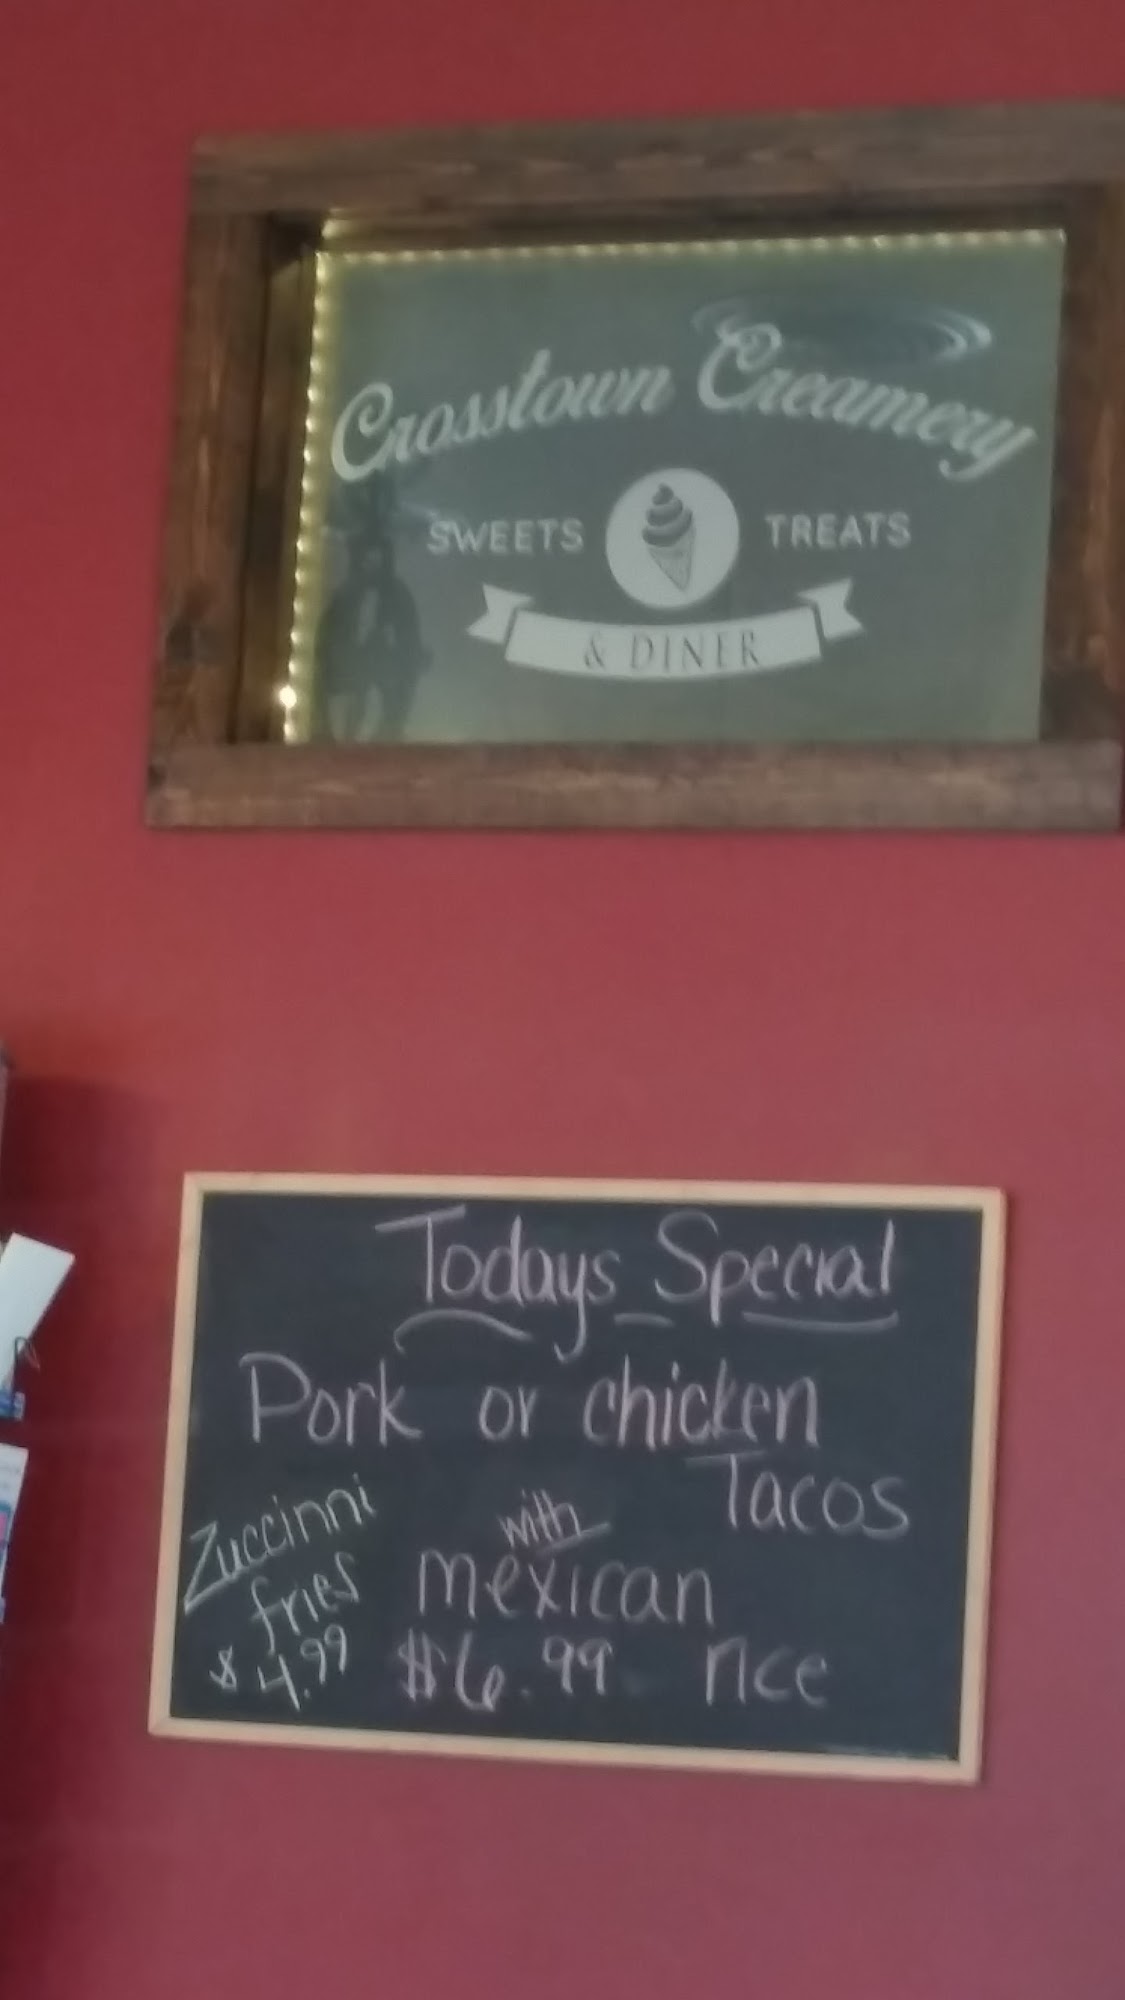 Crosstown Creamery
SWEETS TREATS
& DINER
Todays Special
Pork or chicken
Tacos
with
mexican
$6.99 rice
Zuccinni
fries
$4.99